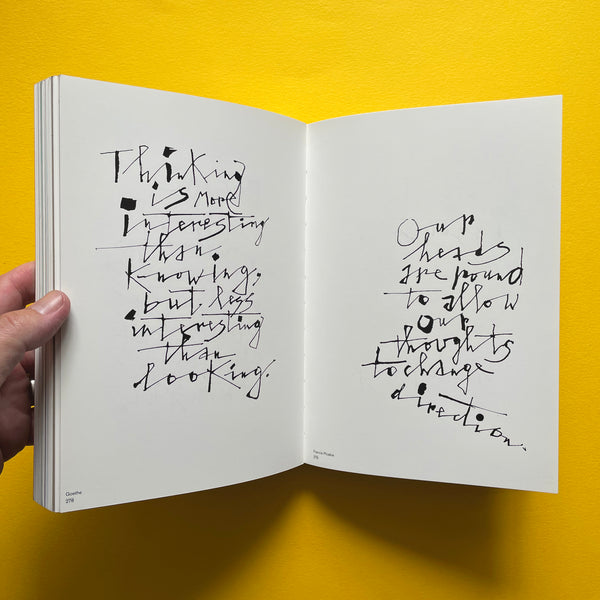 Thinking
is more
interesting
than
Knowing,
but less
interesting
than
looking.
Goethe
278
Our
heads
are pound
to allow
our
thoughts
to change
direction.